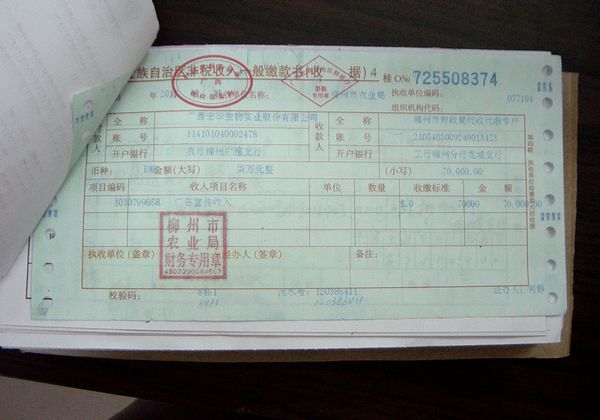 族自治区非税收入一般缴款书(收 据) 4 桂 O№ 725508374
年 单位名称: 柳州市农业局 执收单位编码: 077194
组织机构代码:
全 称 生物实业股份有限公司 收款人 全 称 柳州市财政局代收代缴专户
缴款人 账 号 114101040002478 账 号 2105403009249013423
开户银行 农行柳州广雅支行 开户银行 工行柳州分行龙城支行
币种: RMB 金额(大写) 柒万元整 (小写) 70,000.00
项目编码 收入项目名称 单位 数量 收缴标准 金 额
1030799058 广告宣传收入 70000 70,000.00
柳州市
农业局
财务专用章
执收单位(盖章) 经办人(签章) 备注:
校验码: 8461 流水号: 120386411 经办人:
8461 120386411
票据
专用章
第四联